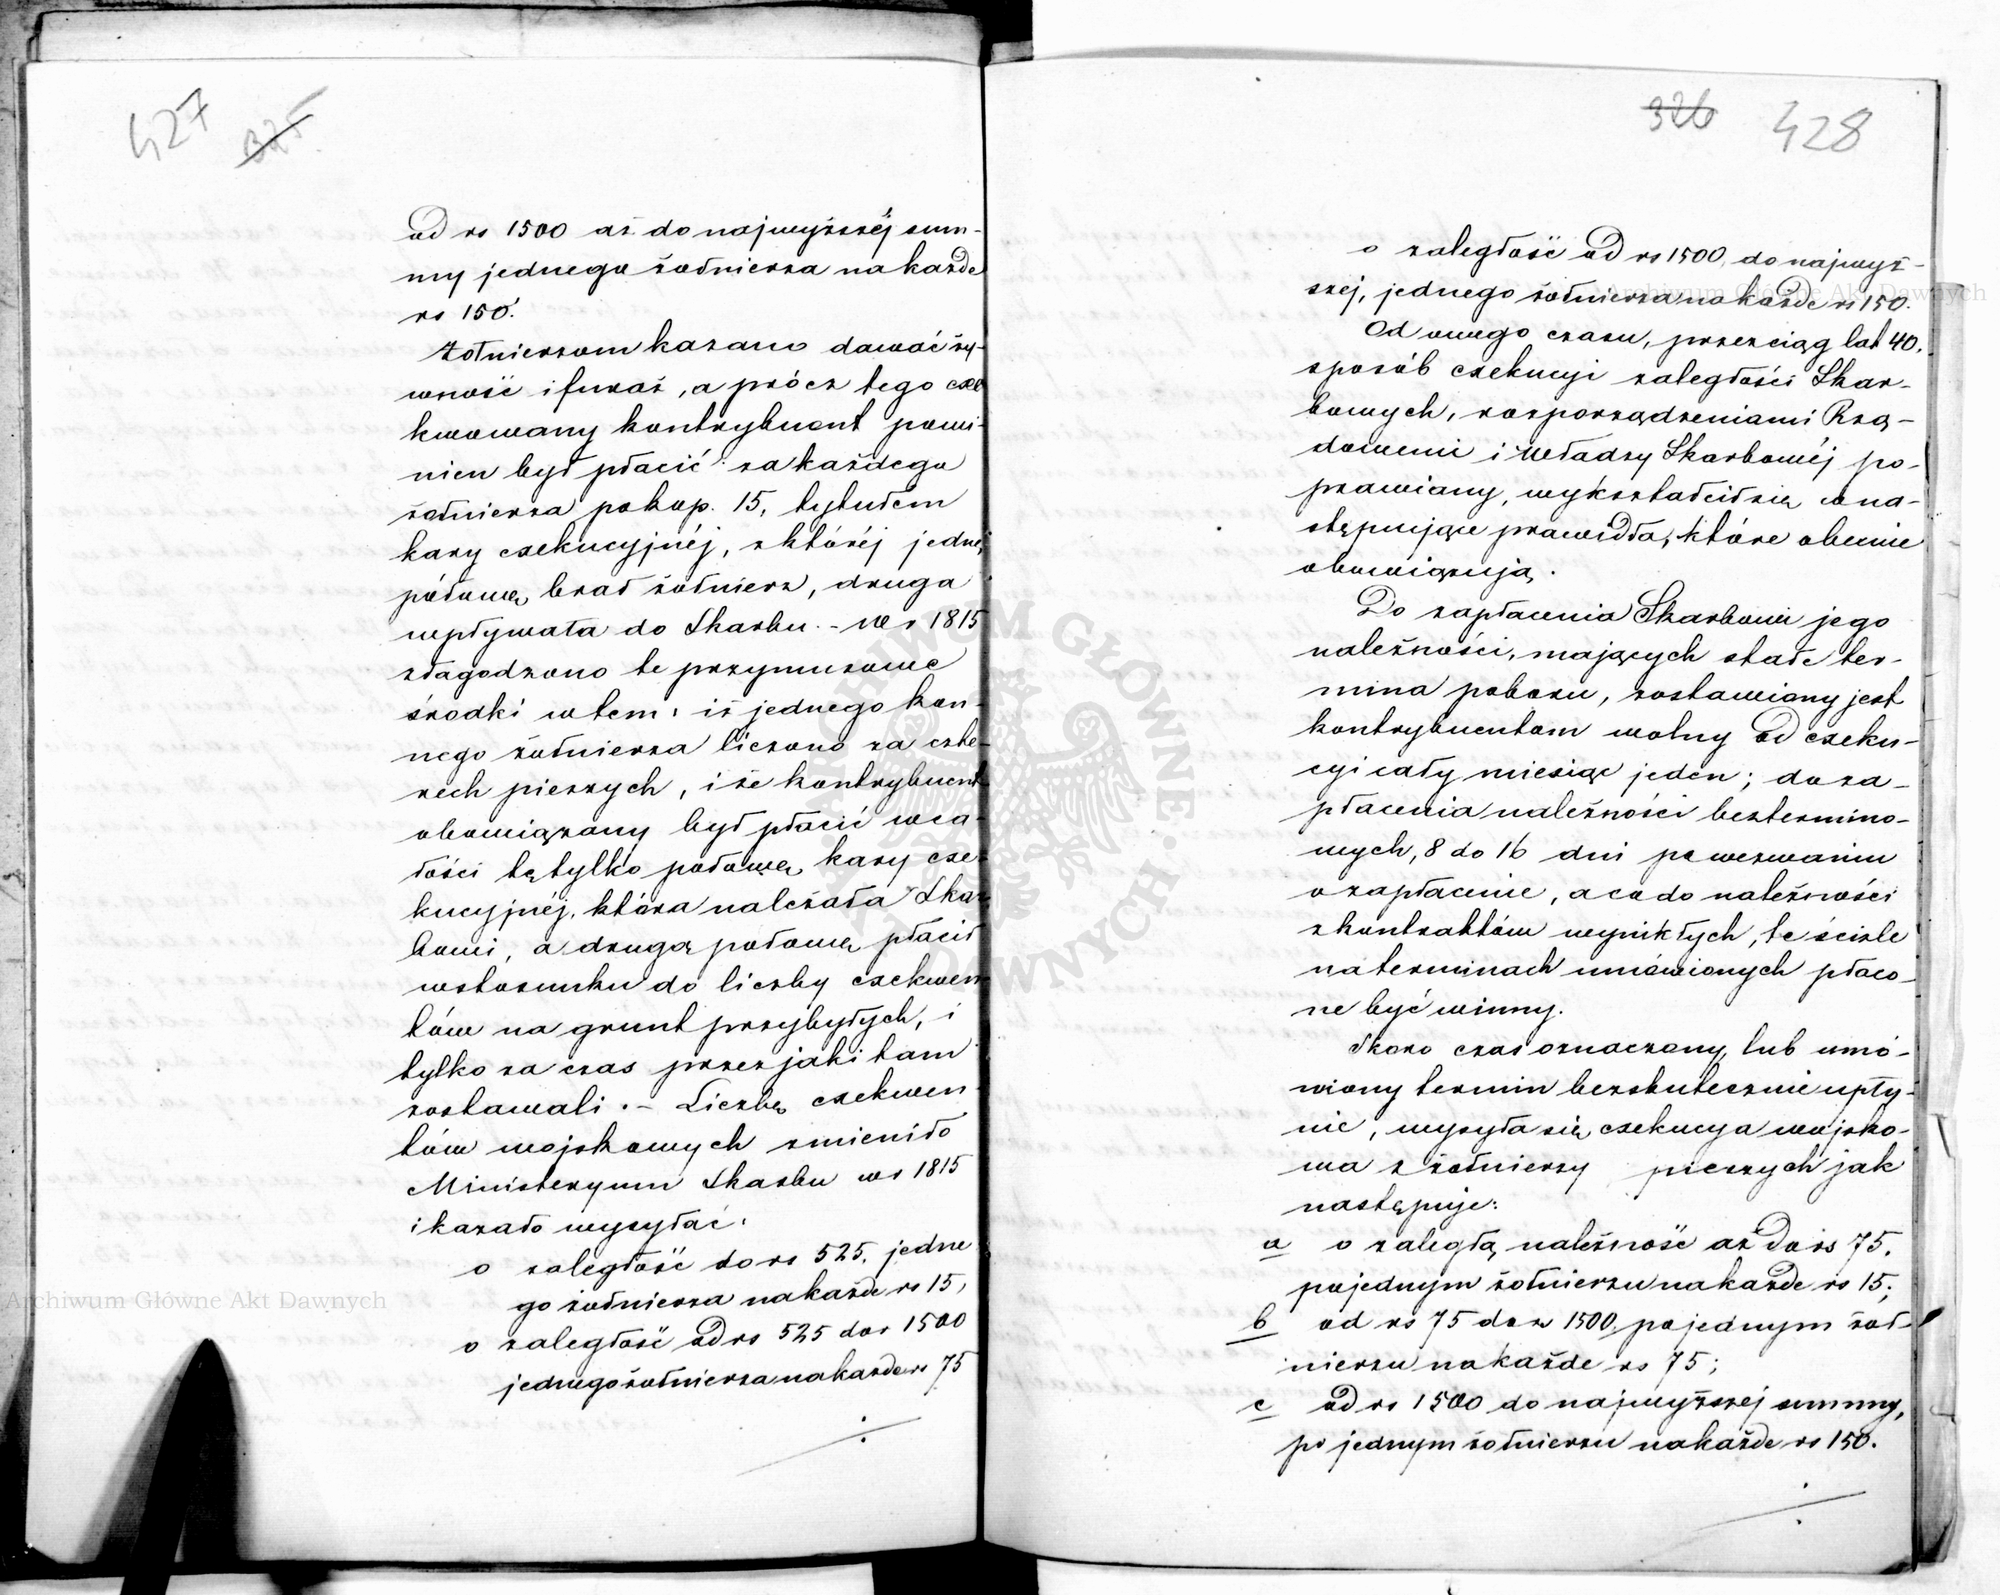 427 325
od rs 1500 aż do najwyższéj sum-
my jednego żołnierza na każde
rs 150.
Żołnierzom kazano dawać ży-
wność i furaż, a prócz tego exe
kwowany kontrybuent powi-
nien był płacić za każdego
żołnierza po kop. 15, tytułem
kary exekucyjnéj, z któréj jedną
połowę brał żołnierz, druga
wpływała do Skarbu. – W r 1815
złagodzono te przymusowe
środki w tem, iż jednego kon-
nego żołnierza liczono za czte-
rech pieszych, i że kontrybuent
obowiązany był płacić w ca-
łości tę tylko połowę kary exe-
kucyjnéj, która należała Skar
bowi, a drugą połowę płacił
w stosunku do liczby exekwen
tów na grunt przybyłych, i
tylko za czas przez jaki tam
zostawali. – Liczbę exekwen-
tów wojskowych zmieniło
Ministeryum Skarbu w r 1815
i kazało wysyłać,
o zaległość do rs 525, jedne
go żołnierza na każde rs 15,
o zaległość od rs 525 do r 1500
jednego żołnierza na każde rs 75
326 428
o zaległość od rs 1500, do najwyż-
széj, jednego żołnierza na każde rs 150.
Od owego czasu, przez ciąg lat 40,
sposób exekucyi zaległości Skar-
bowych, rozporządzeniami Rzą-
dowemi i Władzy Skarbowéj po-
prawiany, wykształcił się w na-
stępujące prawidła, które obecnie
obowiązują.
Do zapłacenia Skarbowi jego
należności, mających stałe ter-
mina poboru, zostawiany jest
kontrybuentom wolny od exeku-
cyi cały miesiąc jeden; do za-
płacenia należności beztermino-
wych, 8 do 16 dni po wezwaniu
o zapłacenie, a co do należności
z kontraktów wynikłych, te ściśle
na terminach umówionych płaco-
ne być winny.
Skoro czas oznaczony, lub umó-
wiony termin bezskutecznie upły-
nie, wysyła się exekucya wojsko-
wa z żołnierzy pieszych jak
następuje:
a o zaległą należność aż do rs 75,
po jednym żołnierzu na każde rs 15;
b od rs 75 do rs 1500, po jednym żoł-
nierzu na każde rs 75;
c od rs 1500 do najwyższéj summy,
po jednym żołnierzu na każde rs 150.
Archiwum Główne Akt Dawnych
Archiwum Główne Akt Dawnych
ARCHIWUM GŁÓWNE AKT DAWNYCH